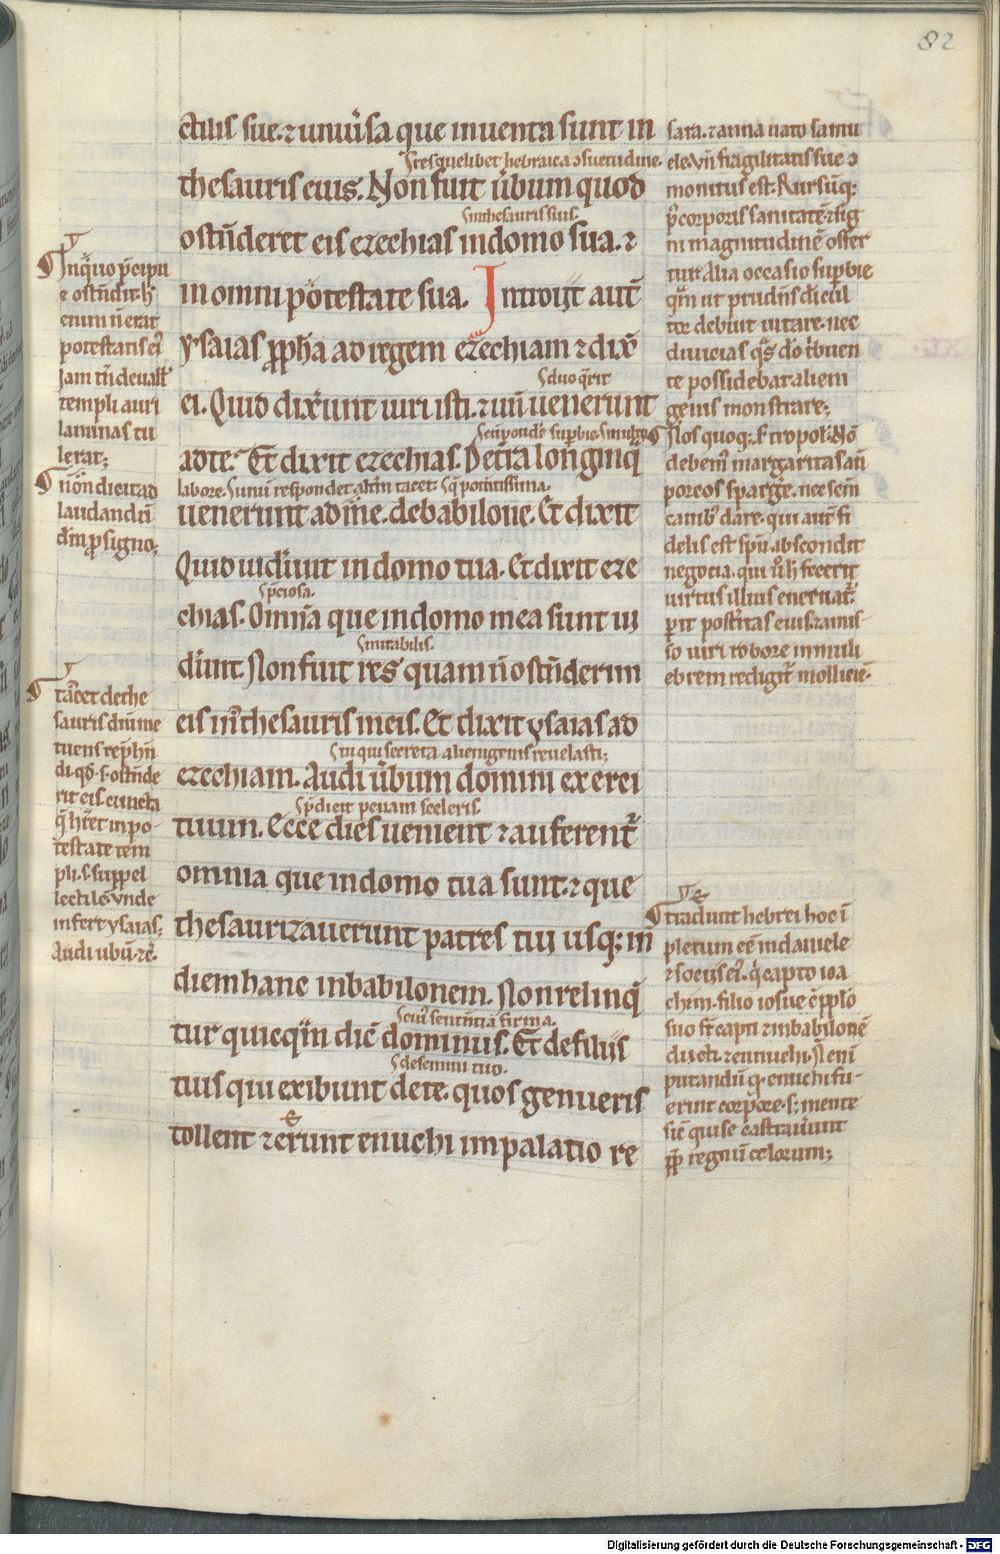 82
ctilis sue. ⁊ uniu̓sa que inuenta sunt in
.s. res quelibet hebraica ↄsuetudine.
thesauris eius. Non fuit u̓bum quod
.s. in thesauris suis.
ostn̄deret eis ezechias in domo sua. ⁊
in omni potestate sua. Introiuit aut̄
ysaias ꝓph̄a ad regem ezechiam ⁊ dix̄
.s. duo q̄rit
ei. Quid dix̄unt uiri isti. ⁊ un̄ uenerunt
ad te. Et dixit ezechias. De t̄ra longinq̄
labore. s. uni respondet alt̄m tacet. s. q̄ potentissima.
uenerunt ad me. de babilone. Et dixit
Quid uider̄unt in domo tua. Et dixit eze
.speciosa.
chias. Omn̄ia que in domo mea sunt ui
.s. mirabilis.
der̄unt. Non fuit res quam n̄ ostn̄derim
eis in thesauris meis. Et dixit ysaias ad
.s. tu qui secreta alienigenis reuelasti;
ezechiam. Audi u̓bum domini exerci
.s. p̄dicit penam sceleris.
tuum. Ecce dies uenient ⁊ auferent᷑
omnia que in domo tua sunt. ⁊ que
thesaurizauerunt patres tui usq; in
diem hanc in babilonem. Non relinq̄
tur quicq̄m dic̄ dominus. Et de filiis
.s. de semini tuo.
tuis qui exibunt de te. quos genueris
tollent ⁊ er̄unt enuchi in palatio re
In quo p̄cipu
e ostn̄dit. h̄
enim n̄ erat
potestatis ei᷒
Jam tn̄ de ualu̓
templi auri
laminas tu
lerat;
non dicit ad
laudandū
dm̄ ꝓ signo;
tacet de the
sauris dn̄i me
tuens rep̄hn̄
di qd̄ .s. ostn̄de
rit eis cuncta
q̄ hr̄et in po-
testate tem
pli .s. suppel
lectilē. unde
infert ysaias;
Audi ubū. ⁊c̄.
sara. ⁊ anna nato samu
ele. un̄ fragilitatis sue ↄ
monitus est. Rursūq;
ꝓ corporis sanitate. ⁊ sig
ni magnitudinē offer
tur alia occasio sup̄bie
q̄m ut prudn̄s di̓ cul
tor debuit uitare. nec
diuicias q̄s do̓ tb̓uen
te possidebat aliem
genis monstrare;
Nos quoq; .s. tropol̓. Nō
debem᷒ margaritas an̄
porcos sparge᷒. nec scm̄
canib᷒ dare. qui aut̄ fi
delis est spū abscondit
negocia. qui n̓ h̄ fecerit
uirtus illius eneruat᷑.
perit post̄itas eius. ⁊ amis-
so uiri robore in muli
ebrem redigit᷑ molliciē.
tradunt hebrei hoc ī
pletum eē in daniele
⁊ sociis ei᷒. q̄ capto ioa
chim. filio iosue c̄ pplō
suo st̄ capti ⁊ in babilonē
ducti. ⁊ eunuchi. N̄ eni̅
putandū q̄ enuchi fu-
erint corpore. s; mente
sic̄ qui se castrauer̄unt
ꝓp̄ regnū celorum;
Digitalisierung gefördert durch die Deutsche Forschungsgemeinschaft - DFG